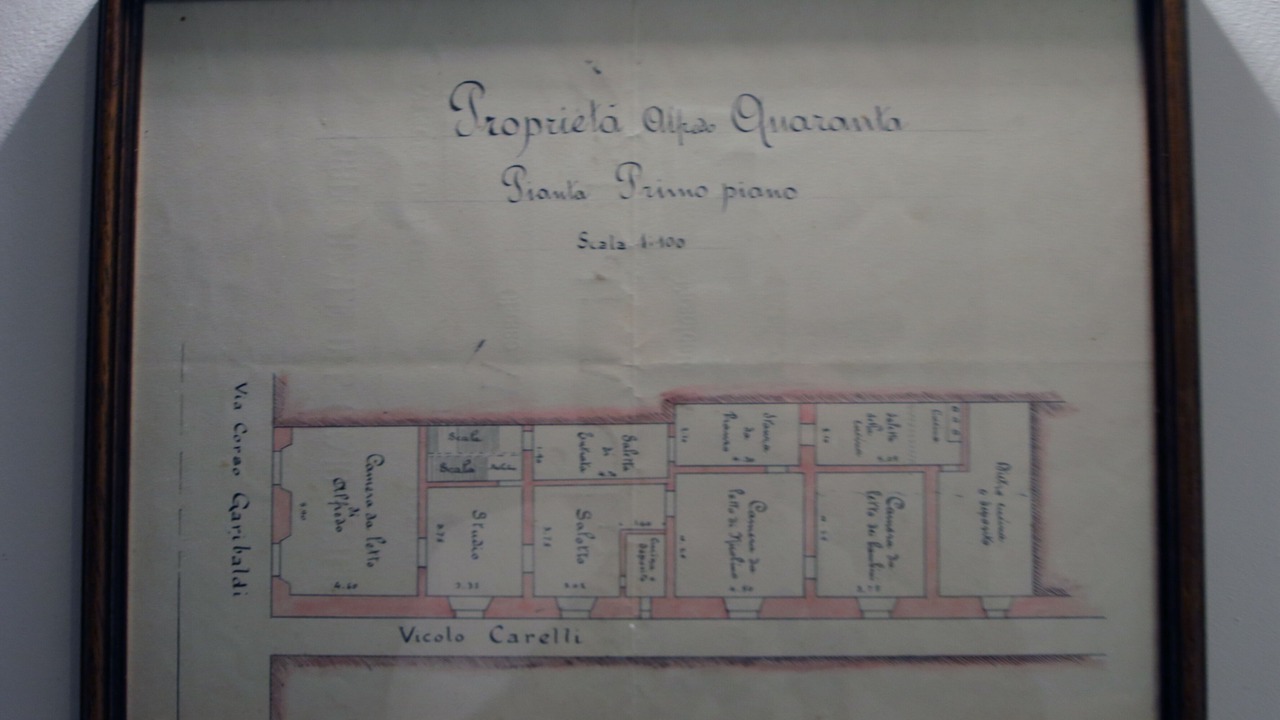 Proprietá Alfredo Quaranta
Pianta Primo piano
Scala 1:100
Via Corso Garibaldi
Camera da letto
di
Alfredo
Scala
Scala
Studio
Salotto
di
Entrata
Salotto
Cucina
deposito
Stanza
da
Pranzo
Camera da
letto di
Salotto
della
cucina
Cucina
Camera da
letto dei bambini
Altra cucina
o deposito
Vicolo Carelli